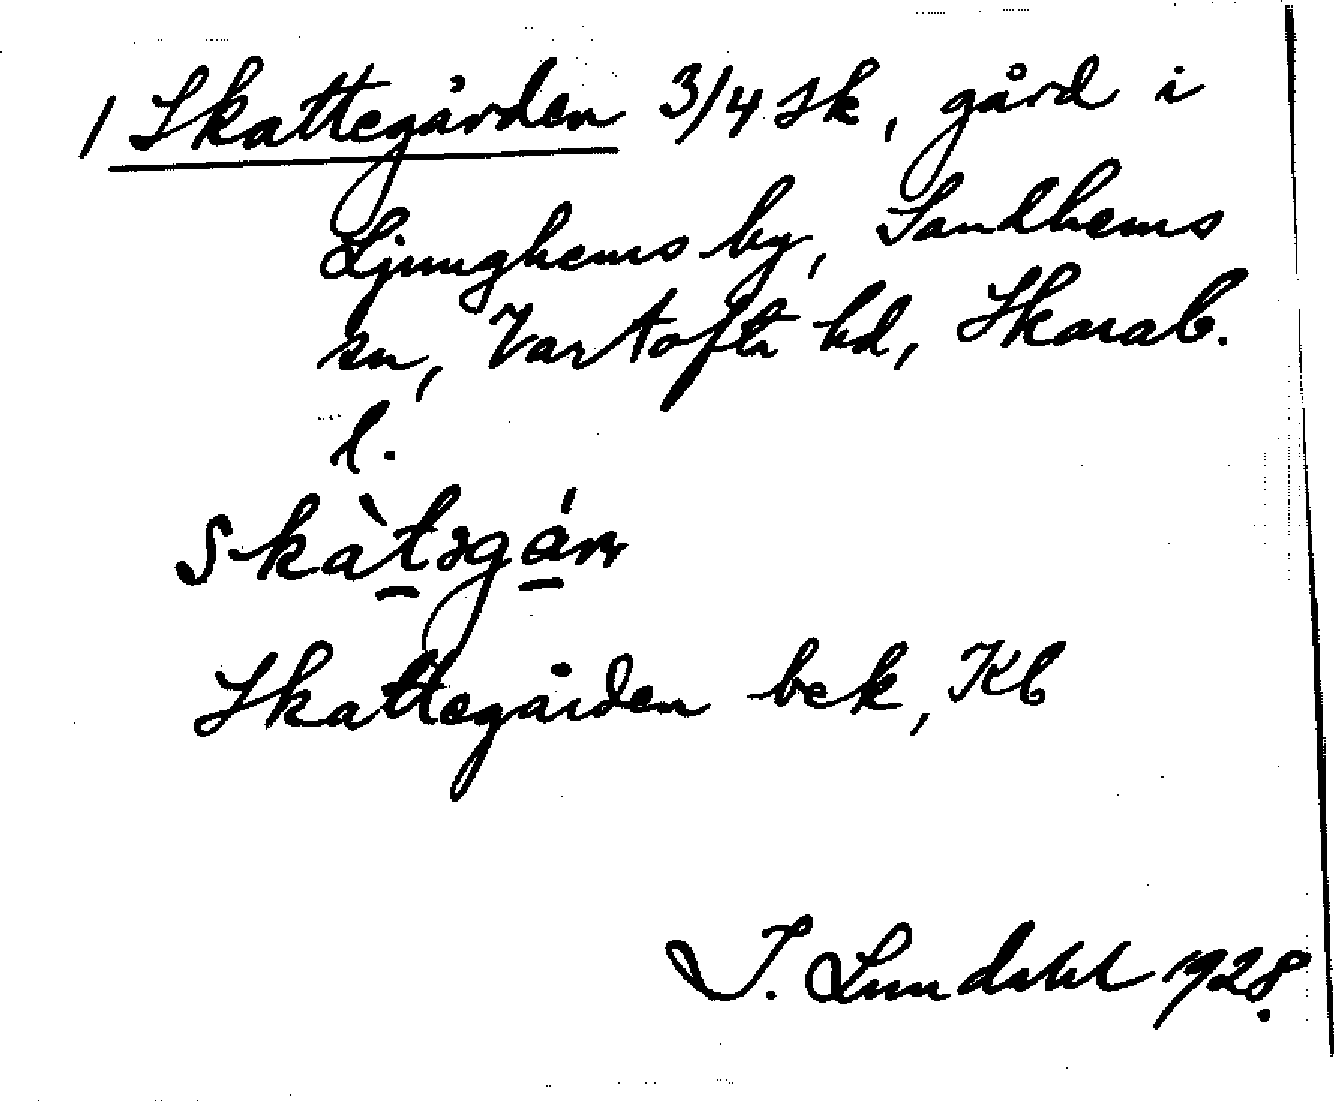 1 Skattegården 3/4 sk, gård i
Ljunghems by, Sandhems
sn, Vartofta hd, Skarab.
l.
skàtsgán
Skattegården bek, Kb
I. Lundahl 1928.